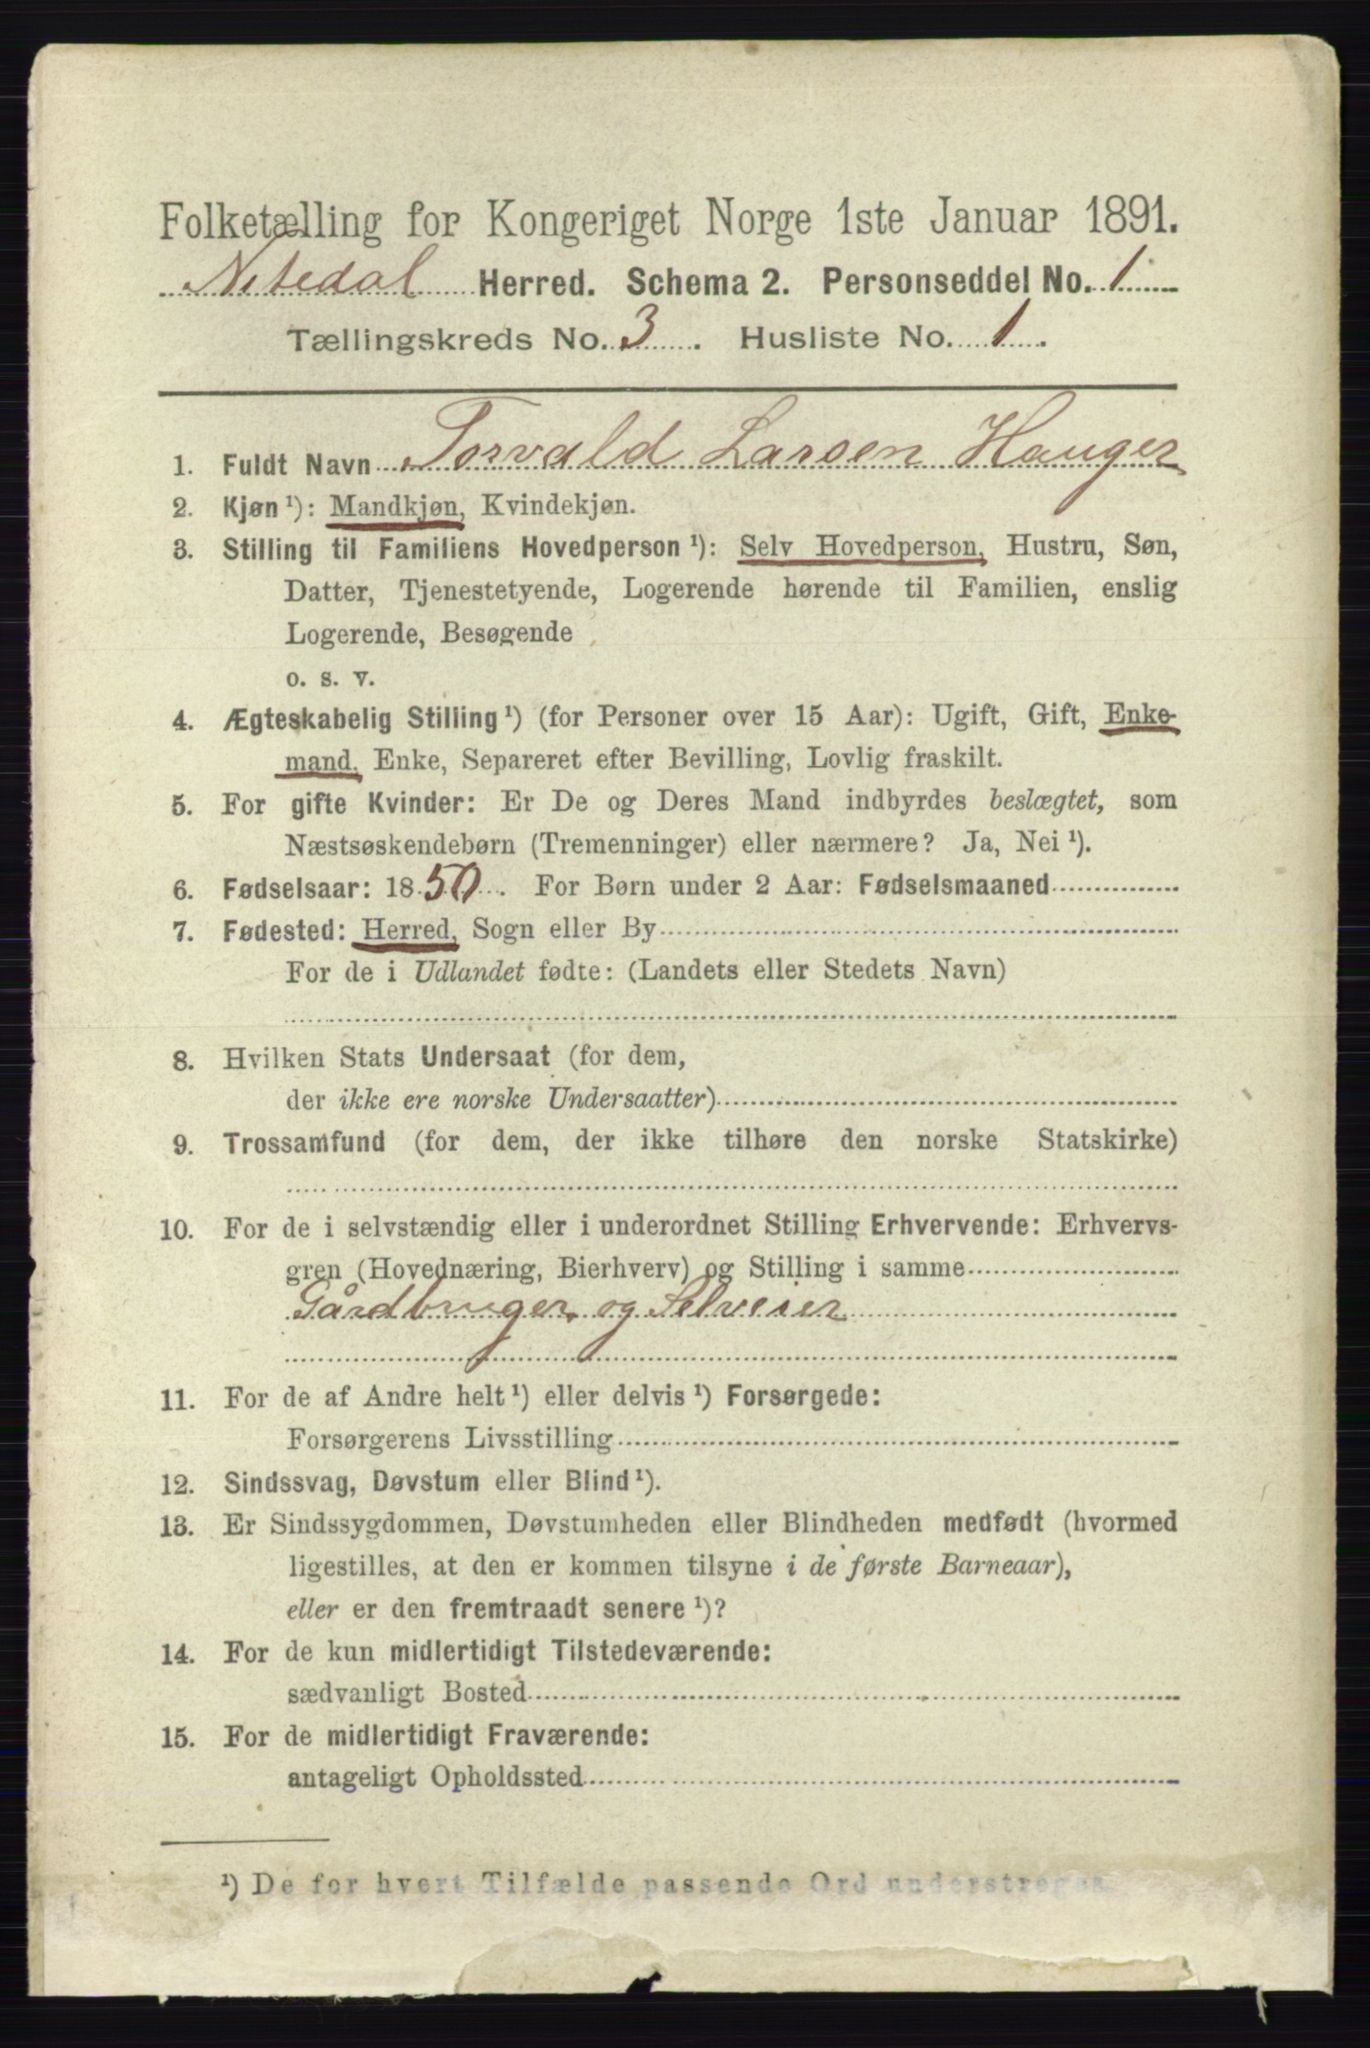 Folketælling for Kongeriget Norge 1ste Januar 1891.
Nitedal Herred. Schema 2. Personseddel No. 1
Tællingskreds No. 3. Husliste No. 1.
1. Fuldt Navn Torvald Larsen Hauger
2. Kjøn ¹): Mandkjøn, Kvindekjøn.
3. Stilling til Familiens Hovedperson ¹): Selv Hovedperson, Hustru, Søn,
Datter, Tjenestetyende, Logerende hørende til Familien, enslig
Logerende, Besøgende
o. s. v.
4. Ægteskabelig Stilling ¹) (for Personer over 15 Aar): Ugift, Gift, Enke-
mand, Enke, Separeret efter Bevilling, Lovlig fraskilt.
5. For gifte Kvinder: Er De og Deres Mand indbyrdes beslægtet, som
Næstsøskendebørn (Tremenninger) eller nærmere? Ja, Nei ¹).
6. Fødselsaar: 1850. For Børn under 2 Aar: Fødselsmaaned
7. Fødested: Herred, Sogn eller By
For de i Udlandet fødte: (Landets eller Stedets Navn)
8. Hvilken Stats Undersaat (for dem,
der ikke ere norske Undersaatter)
9. Trossamfund (for dem, der ikke tilhøre den norske Statskirke)
10. For de i selvstændig eller i underordnet Stilling Erhvervende: Erhvervs-
gren (Hovednæring, Bierhverv) og Stilling i samme
Gårdbruger og Selveier
11. For de af Andre helt ¹) eller delvis ¹) Forsørgede:
Forsørgerens Livsstilling
12. Sindssvag, Døvstum eller Blind ¹).
13. Er Sindssygdommen, Døvstumheden eller Blindheden medfødt (hvormed
ligestilles, at den er kommen tilsyne i de første Barneaar),
eller er den fremtraadt senere ¹)?
14. For de kun midlertidigt Tilstedeværende:
sædvanligt Bosted
15. For de midlertidigt Fraværende:
antageligt Opholdssted
¹) De for hvert Tilfælde passende Ord understreges.